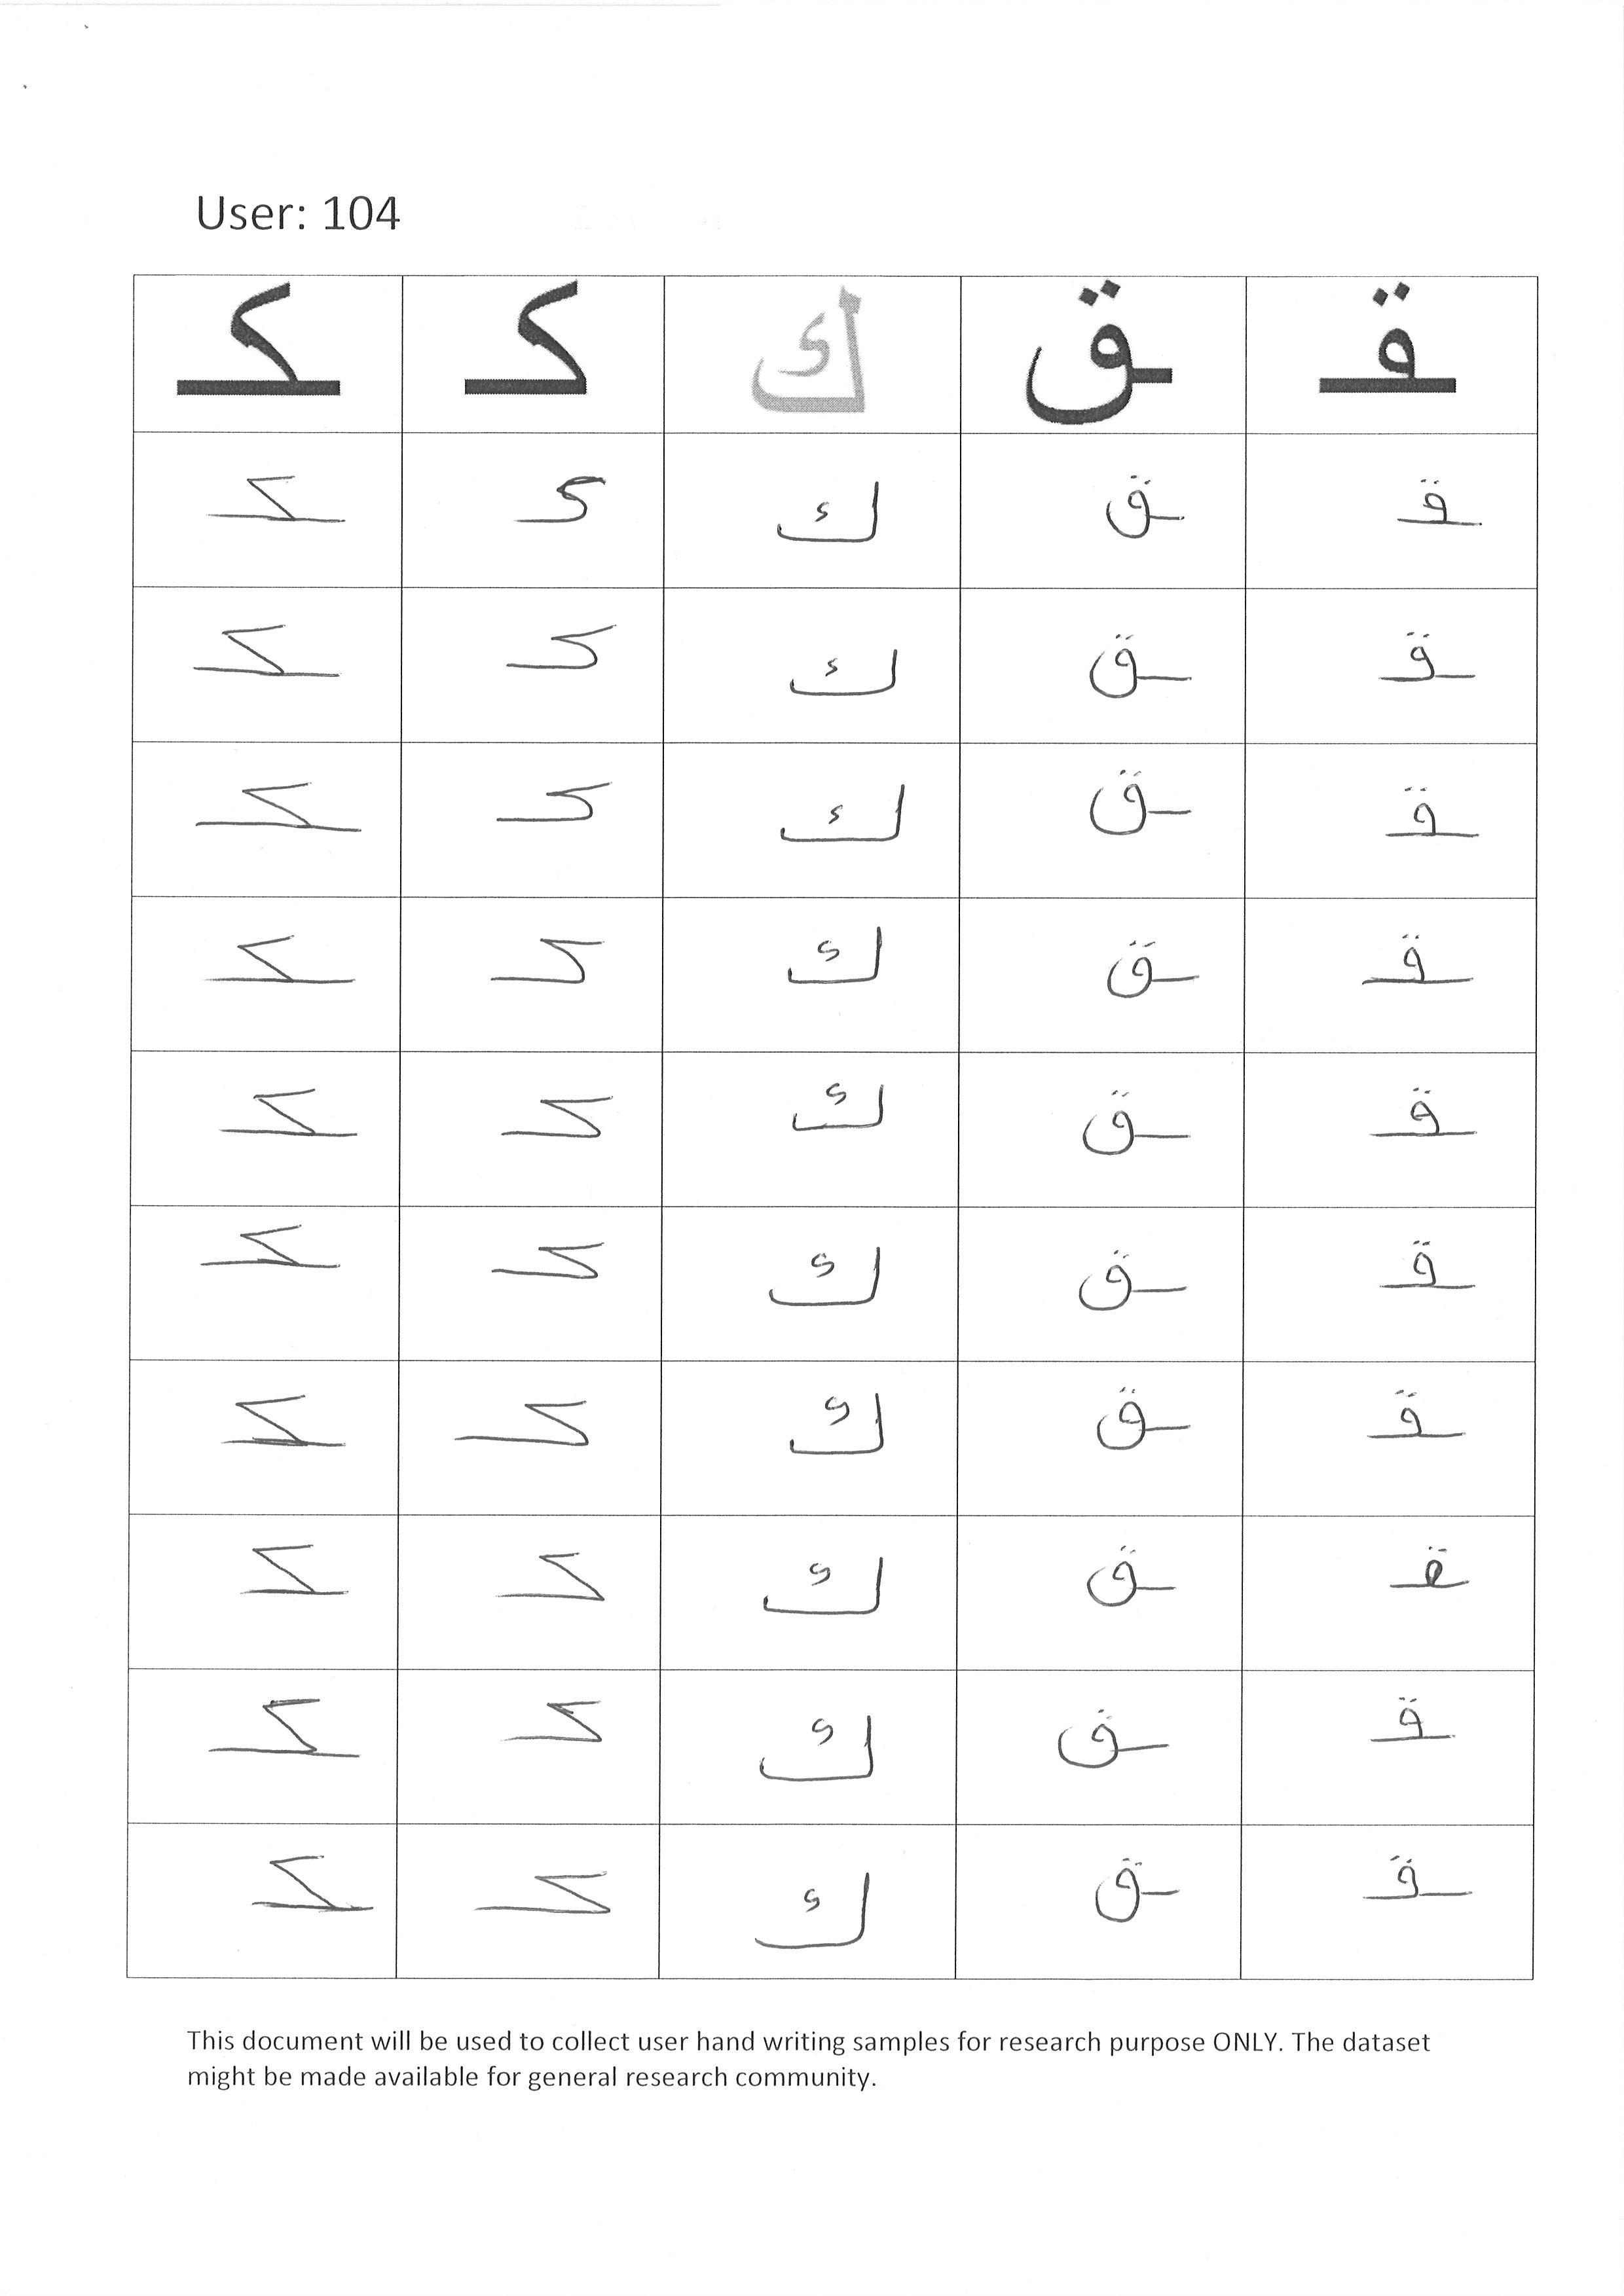 User: 104
ـكـ كـ ك ـق ـقـ
ـكـ كـ ك ـق ـقـ
ـكـ كـ ك ـق ـقـ
ـكـ كـ ك ـق ـقـ
ـكـ كـ ك ـق ـقـ
ـكـ كـ ك ـق ـقـ
ـكـ كـ ك ـق ـقـ
ـكـ كـ ك ـق ـقـ
ـكـ كـ ك ـق ـقـ
ـكـ كـ ك ـق ـقـ
ـكـ كـ ك ـق ـقـ
This document will be used to collect user hand writing samples for research purpose ONLY. The dataset
might be made available for general research community.